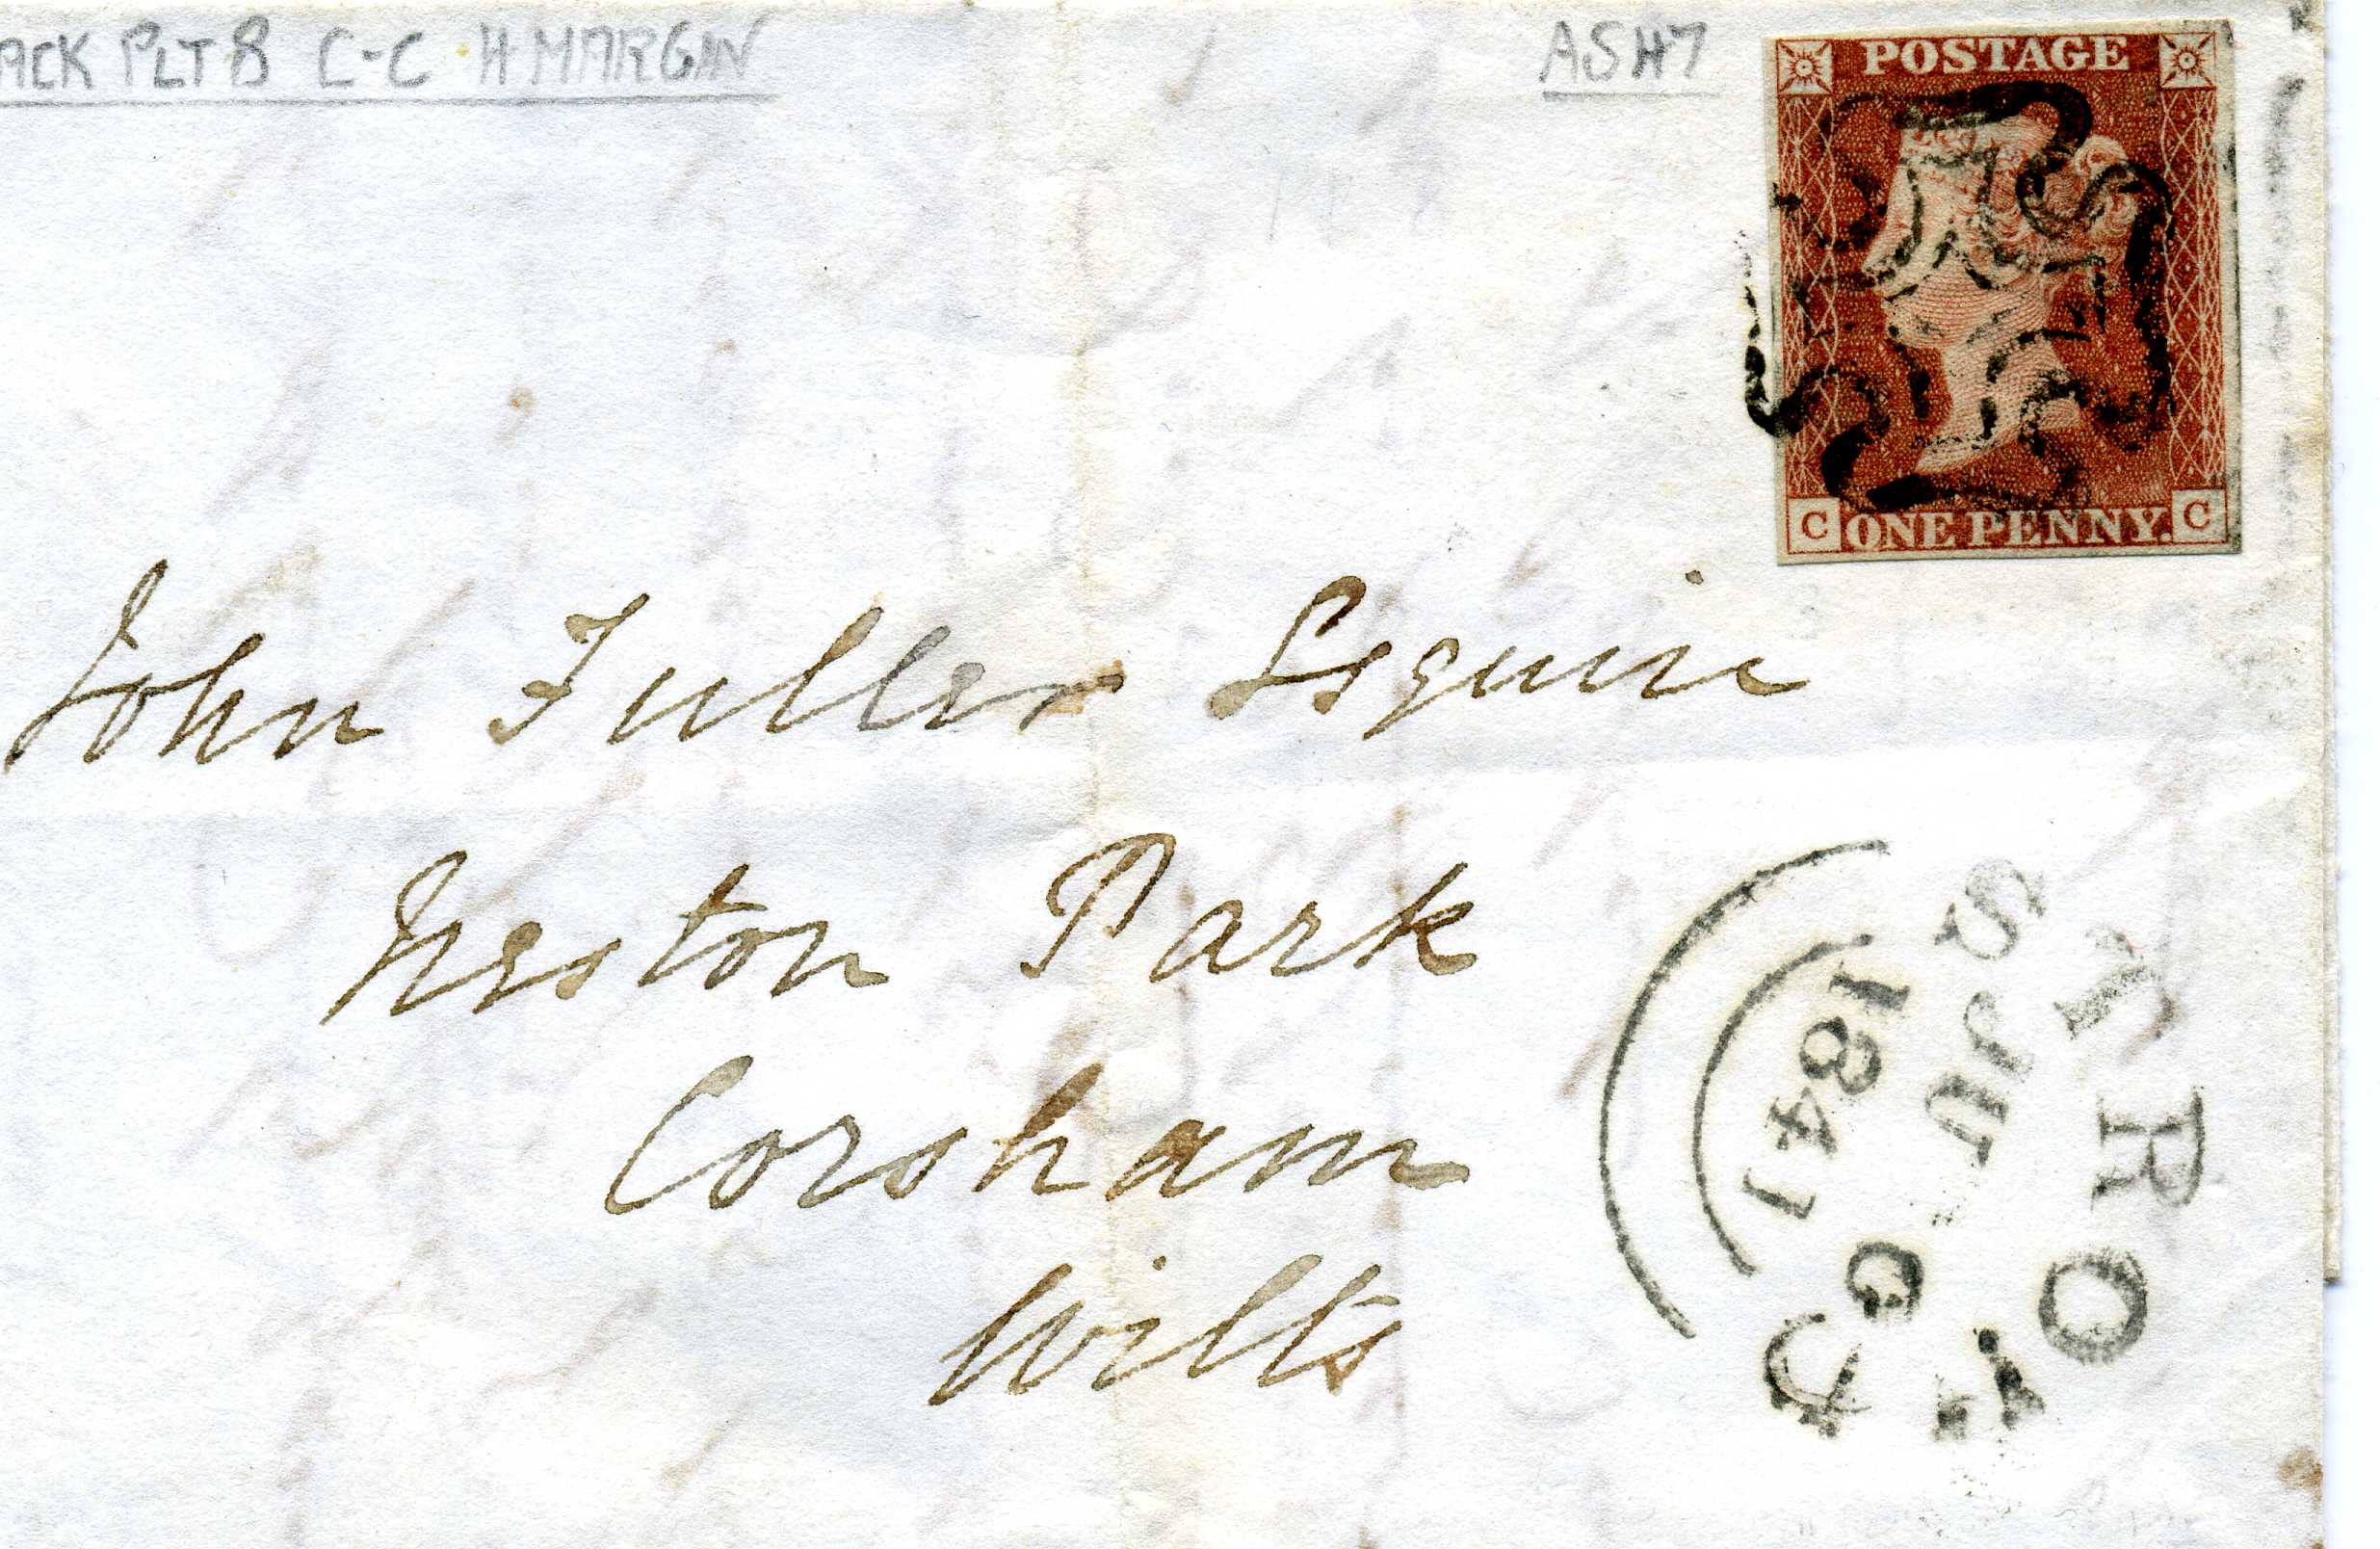 ACK PLT 8 C-C 4 MARGIN
POSTAGE
C ONE PENNY. C
John Fuller Esquire
Neston Park
Corsham
Wilts
STROUD
JU
1841